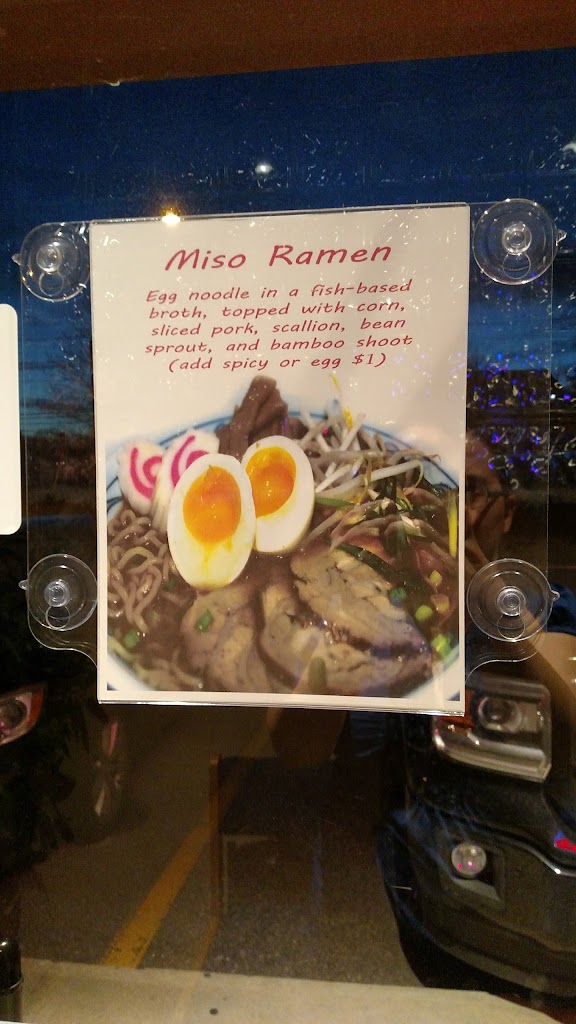 Miso Ramen
Egg noodle in a fish-based
broth, topped with corn,
sliced pork, scallion, bean
sprout, and bamboo shoot
(add spicy or egg $1)